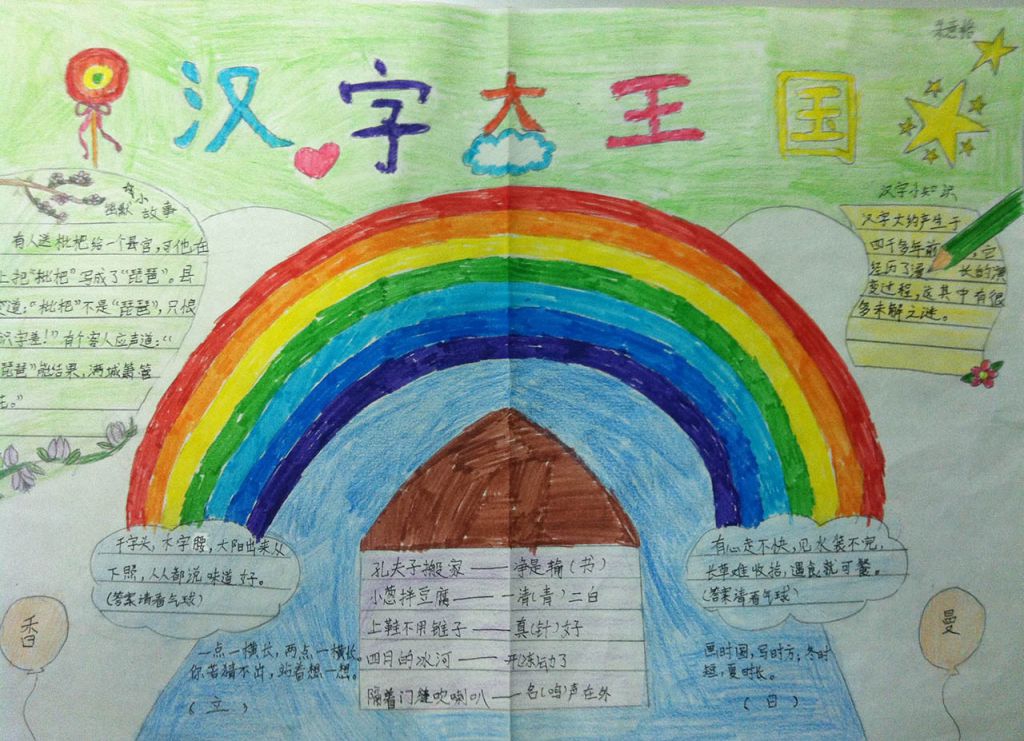 汉字大王国
幽默小故事
有人送枇杷给一个县官,可他在
上把"枇杷"写成了"琵琶"。县
道:"枇杷"不是"琵琶",只恨
识字差!"有个客人应声道:"
琵琶"能结果,满城箫管
花。"
汉字小知识
汉字大约产生于
四千多年前,它
经历了漫长的演
变过程,这其中有很
多未解之谜。
千字头,木字腰,太阳出来从
下照,人人都说味道好。
(答案请看气球)
有心走不快,见水装不完,
长草难收拾,遇食就可餐。
(答案请看气球)
香
曼
孔夫子搬家——净是输(书)
小葱拌豆腐——一清(青)二白
上鞋不用锥子——真(针)好
四月的冰河——开冻了
隔着门缝吹喇叭——名(鸣)声在外
一点一横长,两点一横长。
你若猜不出,站着想一想。
(立)
画时圆,写时方,冬时
短,夏时长。
(日)